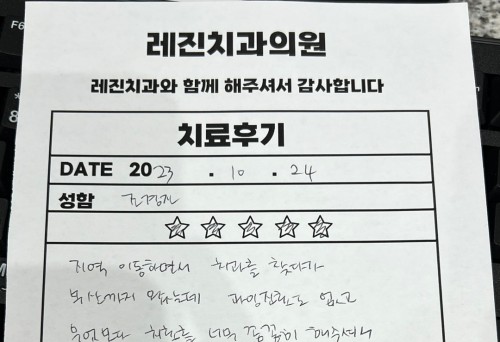 레진치과의원
레진치과와 함께 해주셔서 감사합니다
치료후기
DATE 2023 . 10 . 24
성함
지역 이동하면서 치과를 찾다가
부산까지 왔는데 과잉진료도 없고
무엇보다 치료를 너무 꼼꼼히 해주셔서